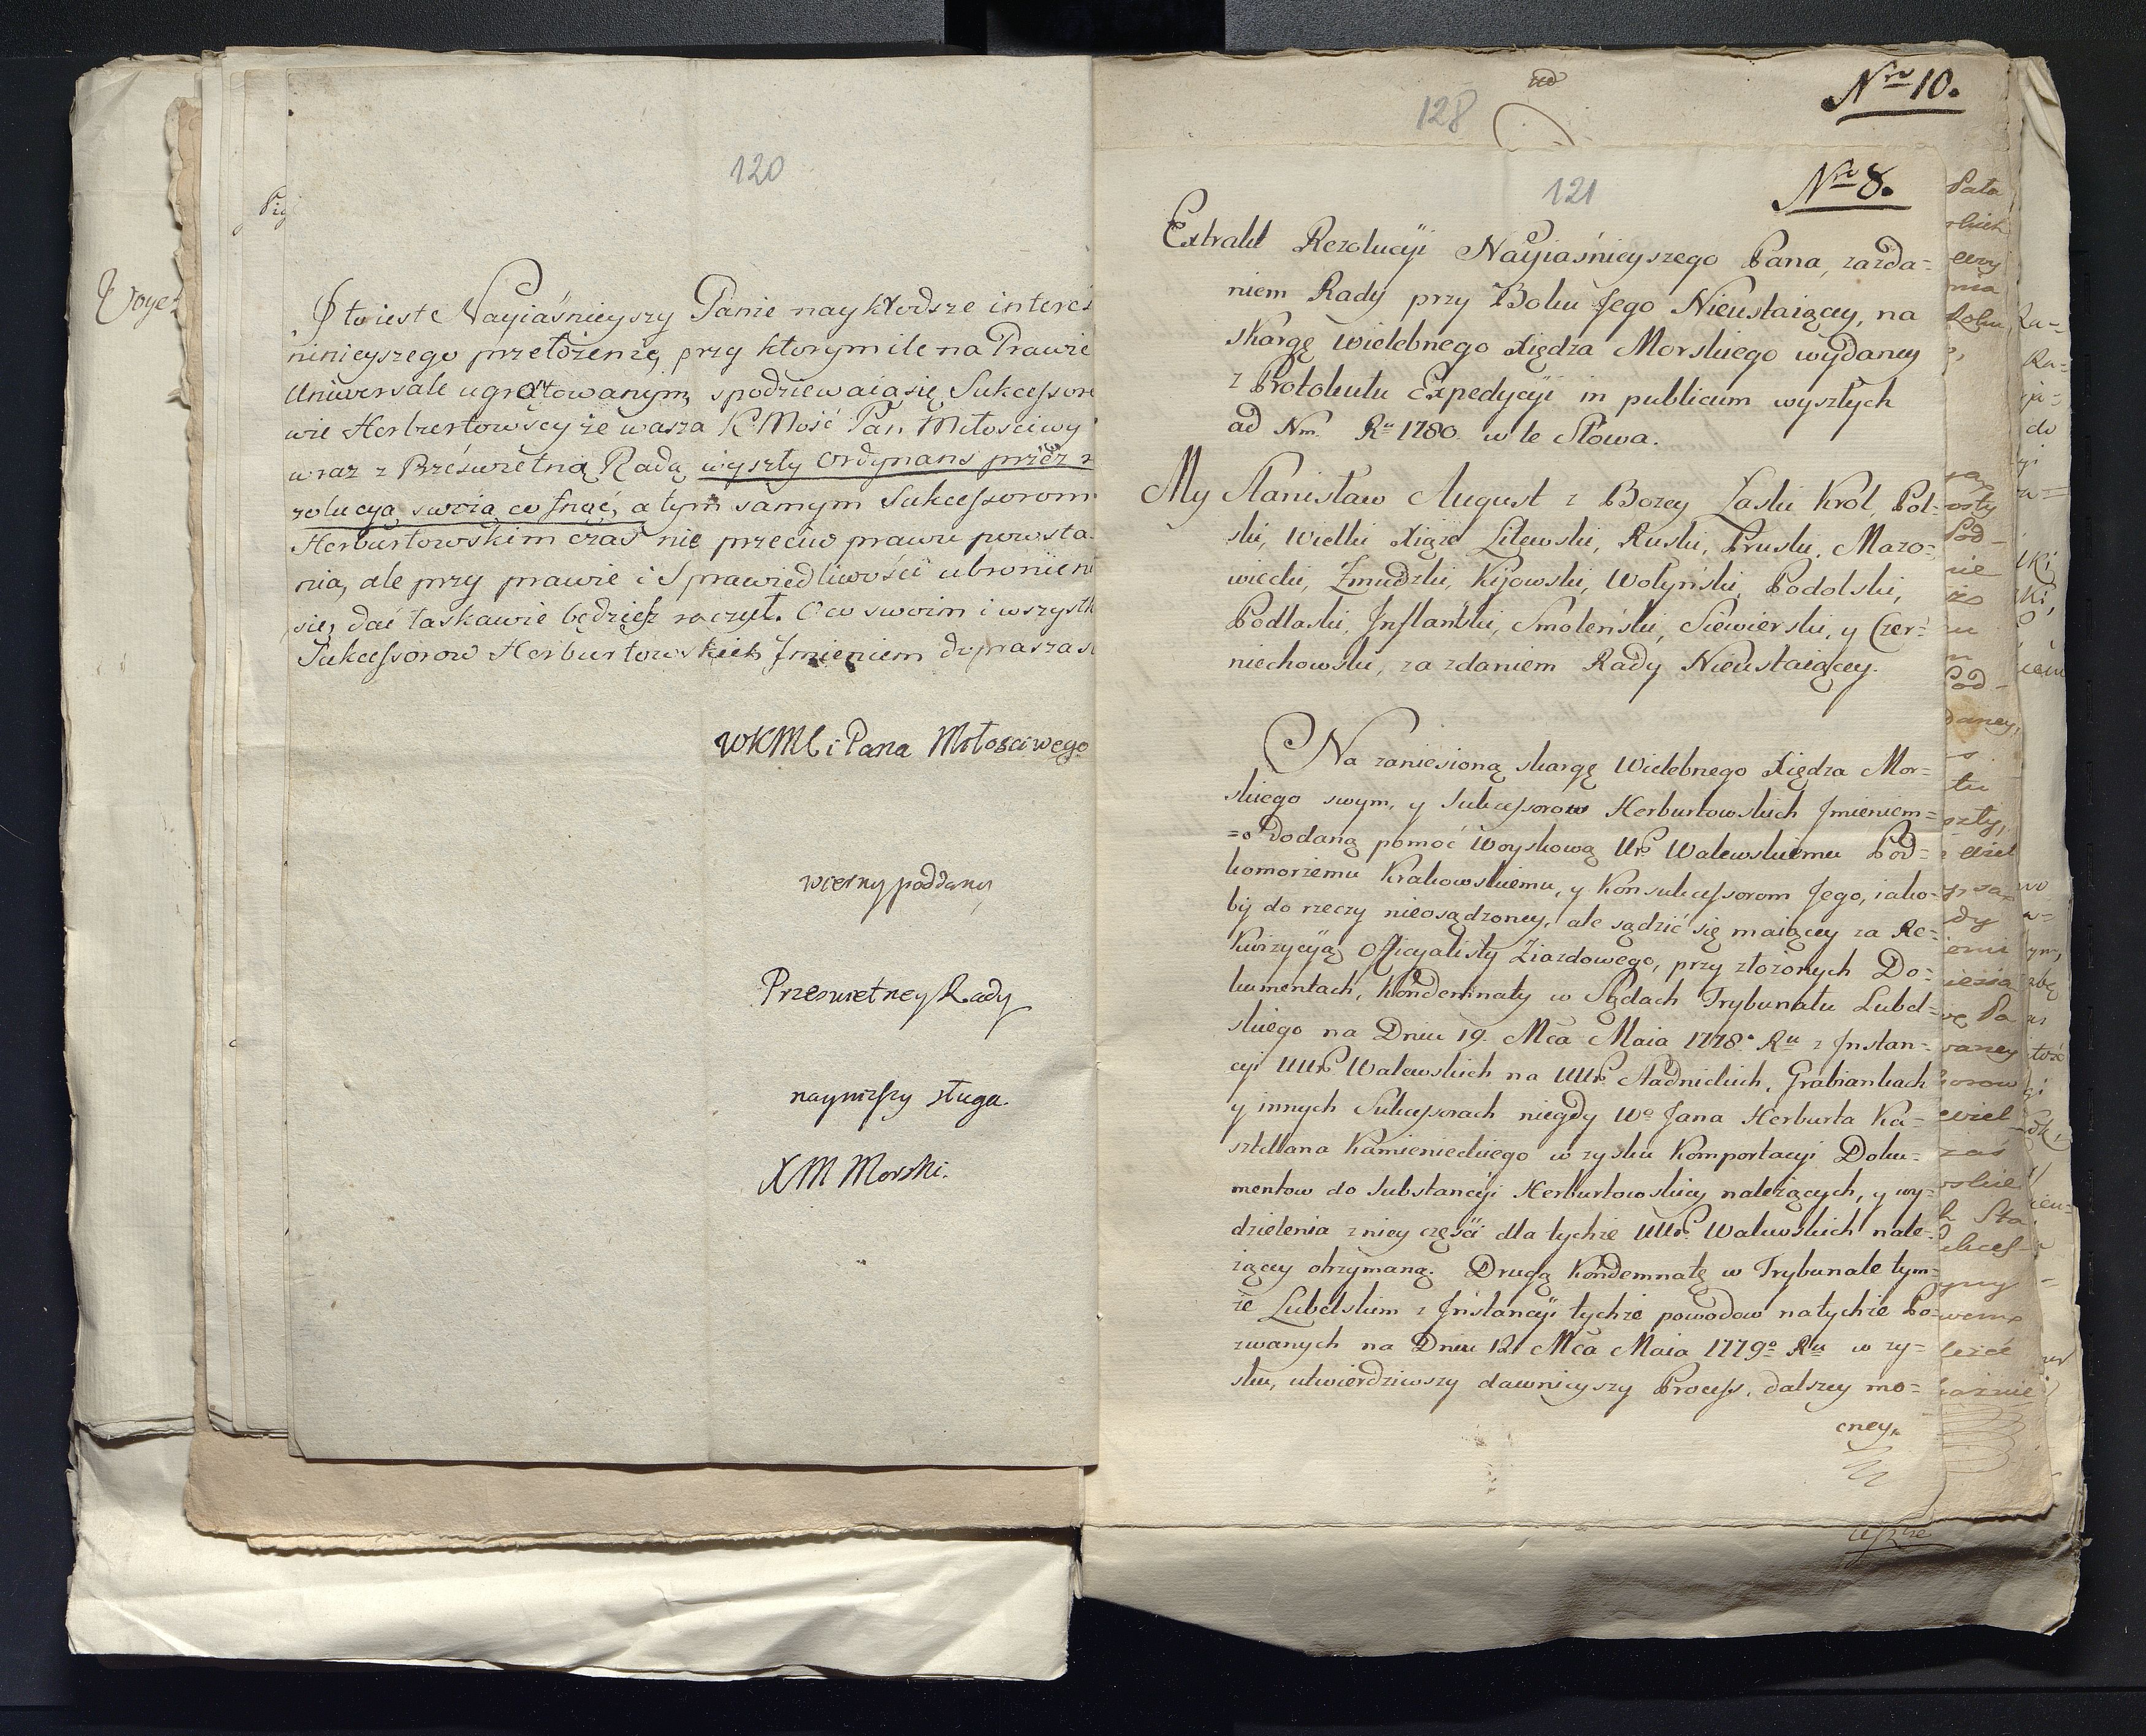 120
I to iest Nayiaśnieyszy Panie naykrodsze interes
ninieyszego przełożenie, przy ktorym ile na Prawie
Uniwersale ugrotowanym, spodziewaią się Sukcessoro
wie Herburtowscy że wasza K Mość Pan Miłościwy
wraz z Prześwietną Radą wyszły Ordynans przez r
zolucyą swoią cofnąć, a tym samym Sukcessorom
Herburtowskim czas nie przeciw prawu powsta
nia, ale przy prawie i Sprawiedliwości ubronieni
się, dać łaskawie będziesz raczył. O co swoim i wszystk
Sukcessorow Herburtowskich Jmieniem dopraszasi
WKMCi Pana Miłościwego
wierny poddany
Przeswietney Rady
naynizszy sługa.
XM Morski.
128
Nro 10.
121
Nro 8.
Extrakt Rezolucyi Nayiaśnieyszego Pana, za zda=
niem Rady przy Boku Jego Nieustaiącey, na
Skargę Wielebnego Xiędza Morskiego wydaney
z Protokułu Expedycyi in publicum wyszłych
ad Nm. Ru 1780. w te Słowa.
My Stanisław August z Bozey Łaski Krol Pol=
ski, Wielki Xiąże Litewski, Ruski, Pruski, Mazo=
wiecki, Zmudzki, Kijowski, Wołyński, Podolski,
Podlaski, Jnflantski, Smoleński, Siewierski, y Czer=
niechowski, za zdaniem Rady Nieustaiącey.
Na zaniesioną skargę Wielebnego Xiędza Mor=
skiego swym, y Sukcessorow Herburtowskich Jmieniem=
=o Dodaną pomoc Woyskową Ur. Walewskiemu Pod=
komorzemu Krakowskiemu, y Konsukcessorom Jego, iako=
by do rzeczy nieosądzoney, ale sądzić się maiącey za Re=
kwizycyą Officyalisty Ziazdowego, przy złożonych Do=
kumentach, Kondemnaty w Sądach Trybunału Lubel=
skiego na Dniu 19. Mca Maia 1778. Ru z Jnstan=
cyi UUr. Walewskich na UUr. Stadnickich, Grabiankach
y innych Sukcessorach niegdy Wo Jana Herburta Ka=
sztellana Kamienieckiego w zysku Komportacyi Doku=
mentow do Substancyi Herburtowskiey należących, y wy=
dzielenia z niey części dla tychże UUr. Walewskich nale=
żącey otrzymaną. Drugą Kondemnatę w Trybunale tym=
że Lubelskim z Jnstancyi tychże powodow na tychże Po=
zwanych na Dniu 12. Mca Maia 1779o Ru w zy=
sku, utwierdziwszy dawnieyszy Process, dalszey mo=
cney,